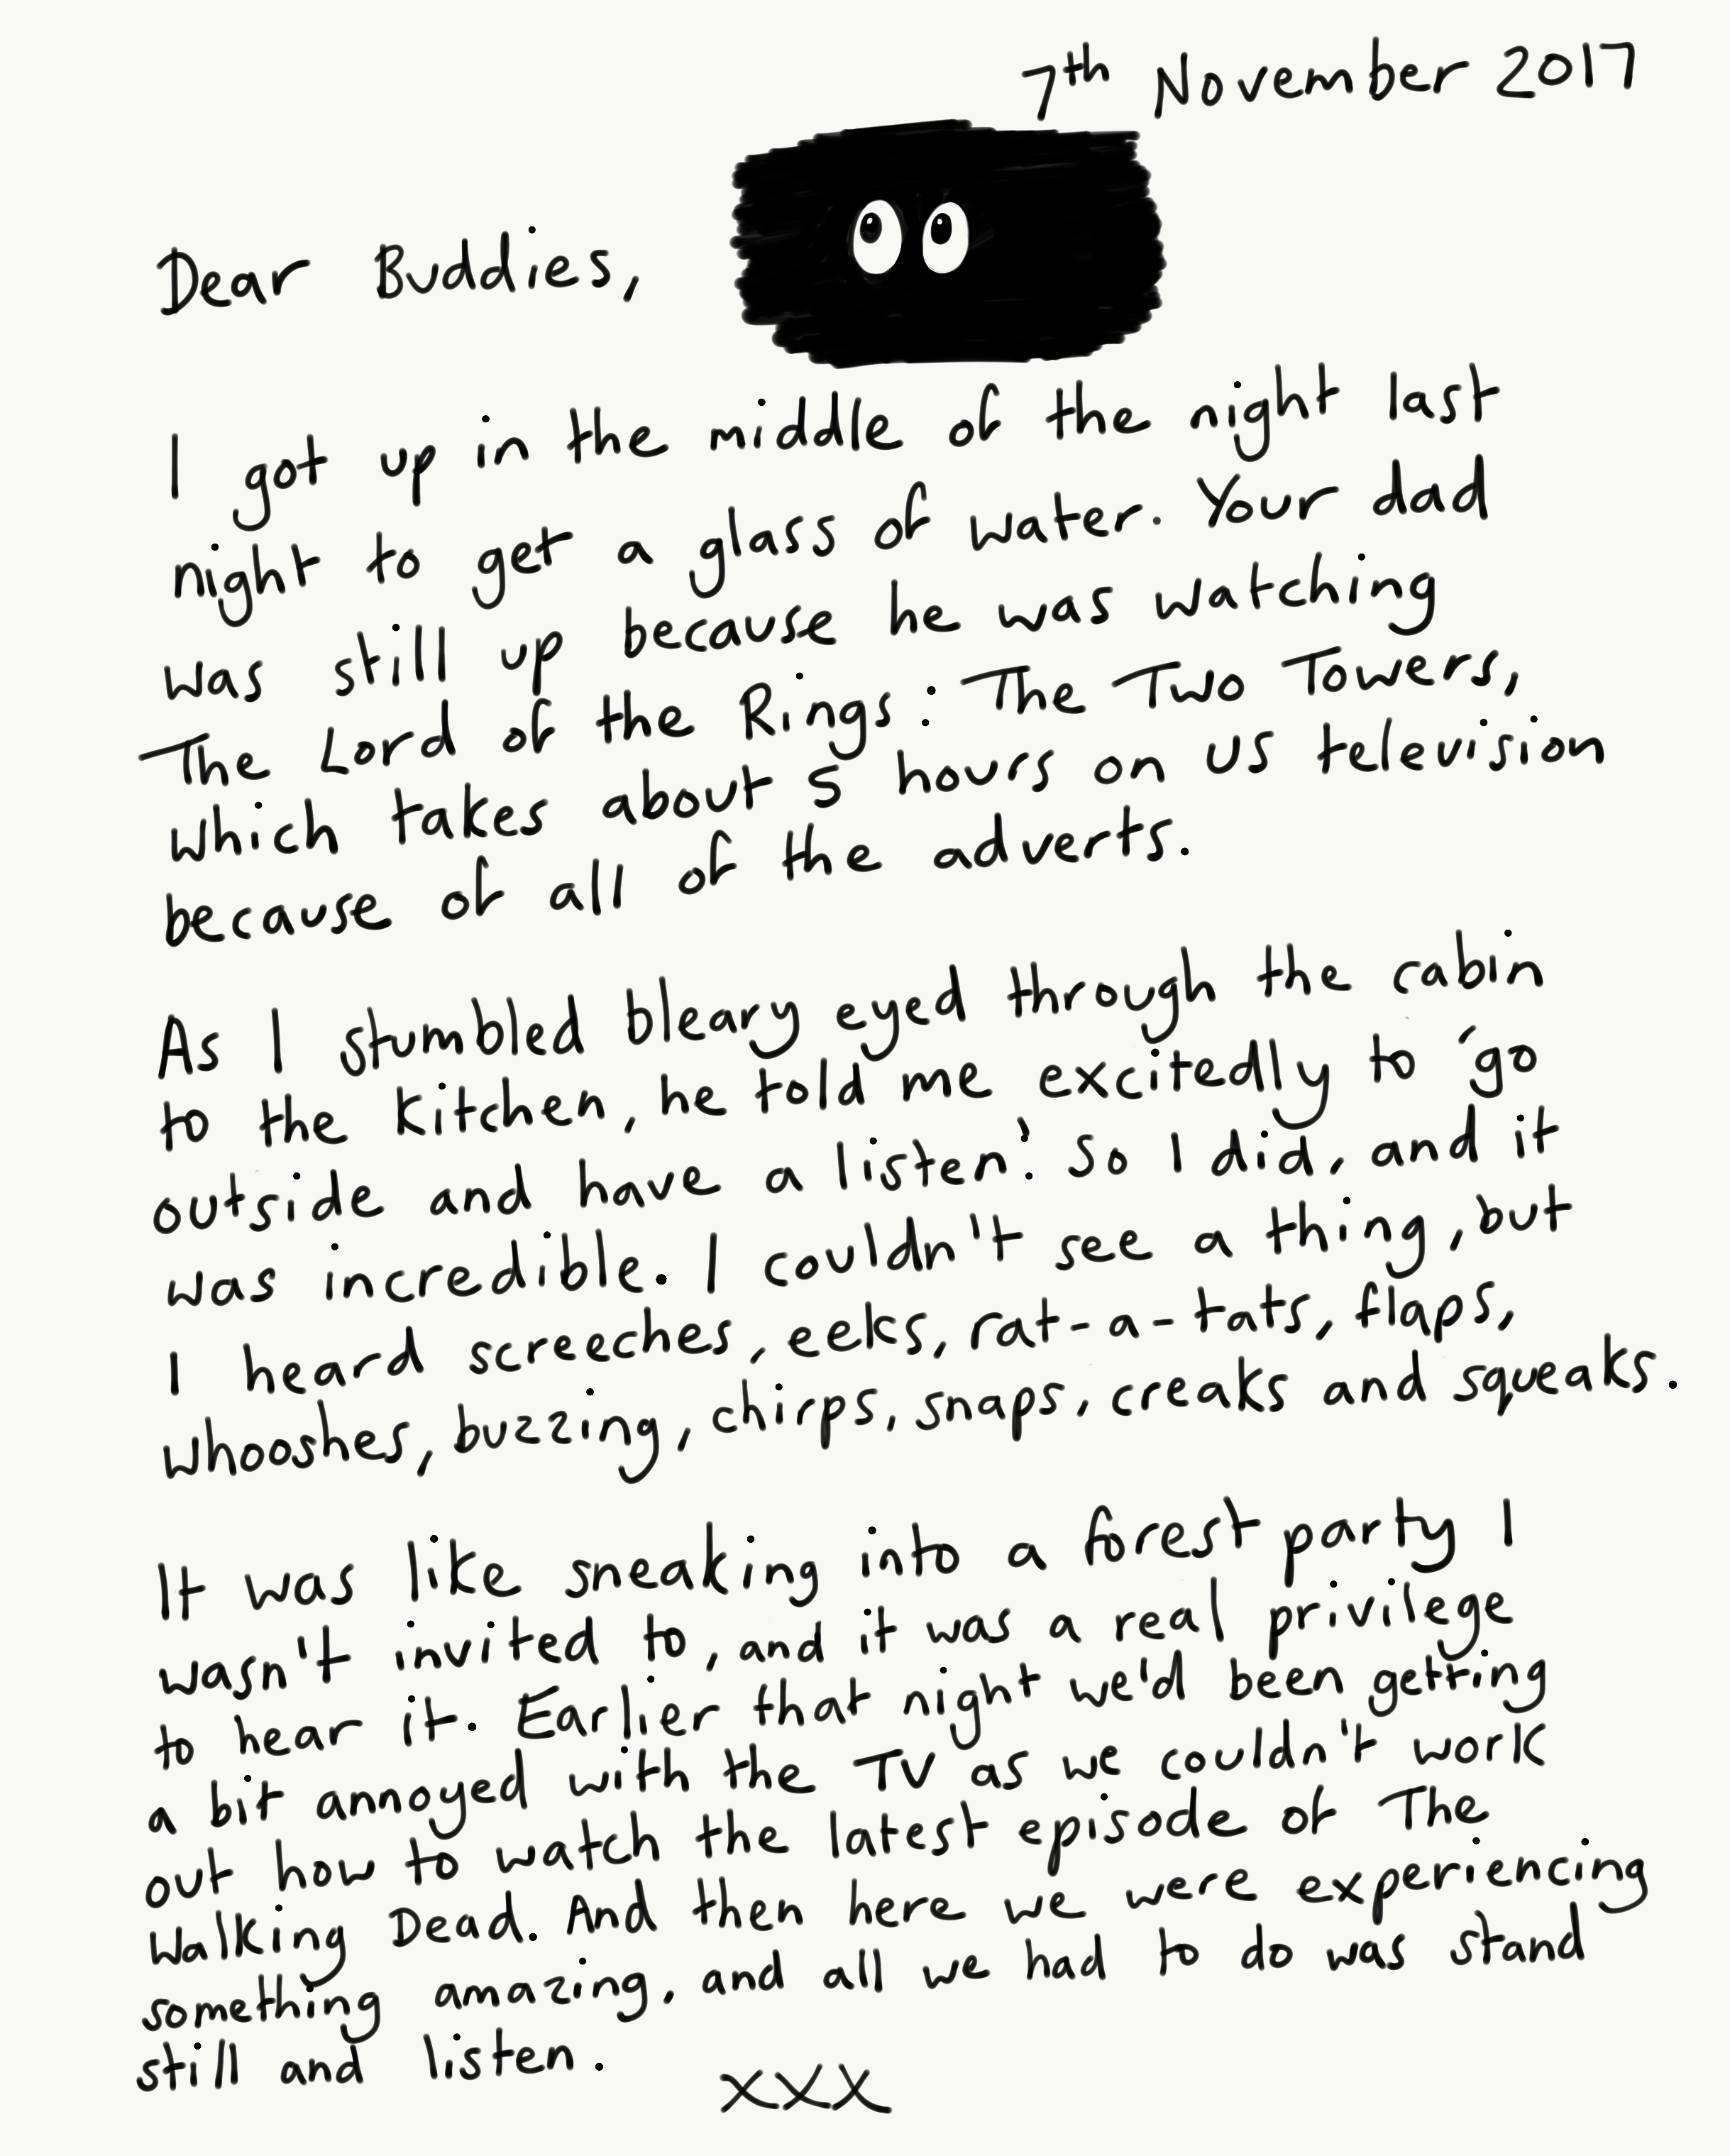 7th November 2017
Dear Buddies,
I got up in the middle of the night last
night to get a glass of water. Your dad
was still up because he was watching
The Lord of the Rings: The Two Towers,
which takes about 5 hours on US television
because of all of the adverts.
As I stumbled bleary eyed through the cabin
to the kitchen, he told me excitedly to 'go
outside and have a listen'. So I did, and it
was incredible. I couldn't see a thing, but
I heard screeches, eeks, rat-a-tats, flaps,
whooshes, buzzing, chirps, snaps, creaks and squeaks.
It was like sneaking into a forest party I
wasn't invited to, and it was a real privilege
to hear it. Earlier that night we'd been getting
a bit annoyed with the TV as we couldn't work
out how to watch the latest episode of The
Walking Dead. And then here we were experiencing
something amazing, and all we had to do was stand
still and listen.
xxx